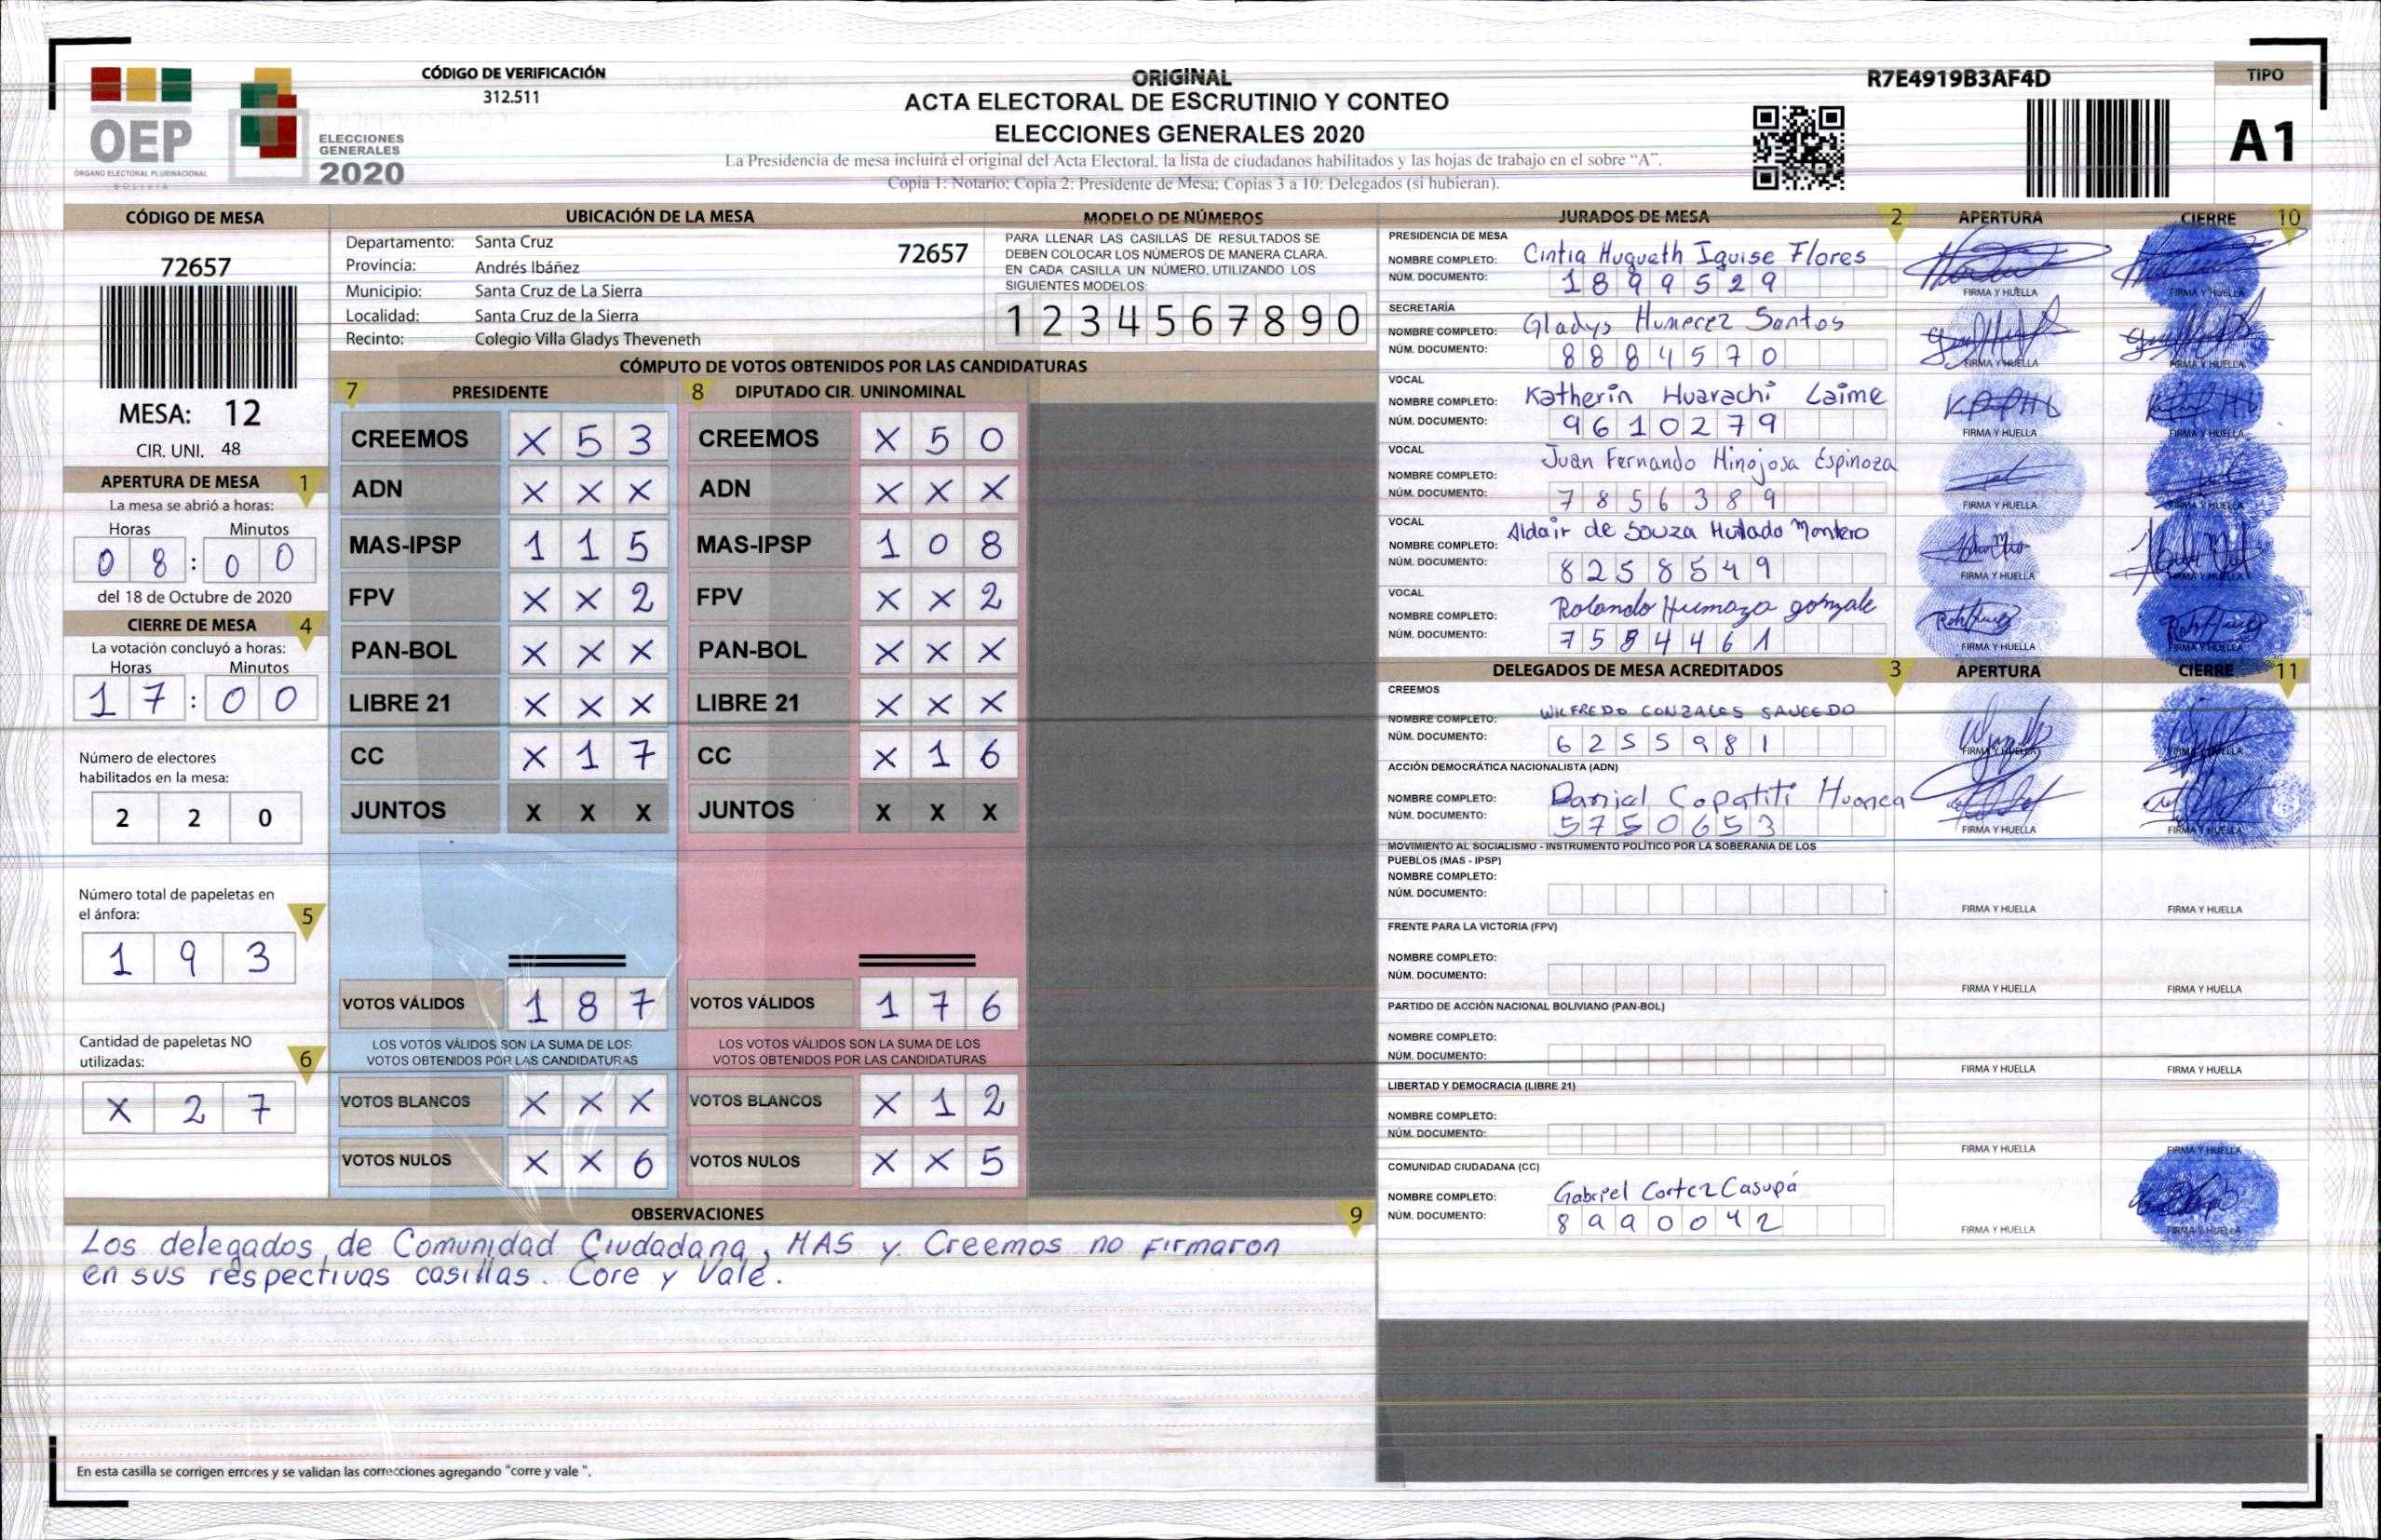 OEP
ÓRGANO ELECTORAL PLURINACIONAL
BOLIVIA
ELECCIONES
GENERALES
2020
CÓDIGO DE VERIFICACIÓN
312.511
ORIGINAL
ACTA ELECTORAL DE ESCRUTINIO Y CONTEO
ELECCIONES GENERALES 2020
La Presidencia de mesa incluirá el original del Acta Electoral, la lista de ciudadanos habilitados y las hojas de trabajo en el sobre “A”.
Copia 1: Notario; Copia 2: Presidente de Mesa; Copias 3 a 10: Delegados (si hubieran).
R7E4919B3AF4D
TIPO
A1
CÓDIGO DE MESA
72657
MESA: 12
CIR. UNI. 48
APERTURA DE MESA 1
La mesa se abrió a horas:
Horas Minutos
0 8 : 0 0
del 18 de Octubre de 2020
CIERRE DE MESA 4
La votación concluyó a horas:
Horas Minutos
1 7 : 0 0
Número de electores
habilitados en la mesa:
2 2 0
Número total de papeletas en
el ánfora: 5
1 9 3
Cantidad de papeletas NO
utilizadas: 6
X 2 7
UBICACIÓN DE LA MESA
Departamento: Santa Cruz 72657
Provincia: Andrés Ibáñez
Municipio: Santa Cruz de La Sierra
Localidad: Santa Cruz de la Sierra
Recinto: Colegio Villa Gladys Theveneth
MODELO DE NÚMEROS
PARA LLENAR LAS CASILLAS DE RESULTADOS SE
DEBEN COLOCAR LOS NÚMEROS DE MANERA CLARA.
EN CADA CASILLA UN NÚMERO, UTILIZANDO LOS
SIGUIENTES MODELOS:
1 2 3 4 5 6 7 8 9 0
CÓMPUTO DE VOTOS OBTENIDOS POR LAS CANDIDATURAS
7 PRESIDENTE 8 DIPUTADO CIR. UNINOMINAL
CREEMOS X 5 3 CREEMOS X 5 0
ADN X X X ADN X X X
MAS-IPSP 1 1 5 MAS-IPSP 1 0 8
FPV X X 2 FPV X X 2
PAN-BOL X X X PAN-BOL X X X
LIBRE 21 X X X LIBRE 21 X X X
CC X 1 7 CC X 1 6
JUNTOS X X X JUNTOS X X X
VOTOS VÁLIDOS 1 8 7 VOTOS VÁLIDOS 1 7 6
LOS VOTOS VÁLIDOS SON LA SUMA DE LOS LOS VOTOS VÁLIDOS SON LA SUMA DE LOS
VOTOS OBTENIDOS POR LAS CANDIDATURAS VOTOS OBTENIDOS POR LAS CANDIDATURAS
VOTOS BLANCOS X X X VOTOS BLANCOS X 1 2
VOTOS NULOS X X 6 VOTOS NULOS X X 5
OBSERVACIONES 9
Los delegados de Comunidad Ciudadana, MAS y Creemos no firmaron
en sus respectivas casillas. Core y Vale.
En esta casilla se corrigen errores y se validan las correcciones agregando "corre y vale ".
JURADOS DE MESA 2 APERTURA CIERRE 10
PRESIDENCIA DE MESA
NOMBRE COMPLETO: Cintia Huqueth Iquise Flores
NÚM. DOCUMENTO: 1 8 9 9 5 2 9 FIRMA Y HUELLA FIRMA Y HUELLA
SECRETARÍA
NOMBRE COMPLETO: Gladys Humerez Santos
NÚM. DOCUMENTO: 8 8 8 4 5 7 0 FIRMA Y HUELLA FIRMA Y HUELLA
VOCAL
NOMBRE COMPLETO: Katherin Huarachi Laime
NÚM. DOCUMENTO: 9 6 1 0 2 7 9 FIRMA Y HUELLA FIRMA Y HUELLA
VOCAL
NOMBRE COMPLETO: Juan Fernando Hinojosa Espinoza
NÚM. DOCUMENTO: 7 8 5 6 3 8 9 FIRMA Y HUELLA FIRMA Y HUELLA
VOCAL
NOMBRE COMPLETO: Aldair de Souza Hutado Montero
NÚM. DOCUMENTO: 8 2 5 8 5 4 9 FIRMA Y HUELLA FIRMA Y HUELLA
VOCAL
NOMBRE COMPLETO: Rolando Humaza gonzale
NÚM. DOCUMENTO: 7 5 8 4 4 6 1 FIRMA Y HUELLA FIRMA Y HUELLA
DELEGADOS DE MESA ACREDITADOS 3 APERTURA CIERRE 11
CREEMOS
NOMBRE COMPLETO: WILFREDO GONZALES SAUCEDO
NÚM. DOCUMENTO: 6 2 5 5 9 8 1 FIRMA Y HUELLA FIRMA Y HUELLA
ACCIÓN DEMOCRÁTICA NACIONALISTA (ADN)
NOMBRE COMPLETO: Daniel Copatiti Huanca
NÚM. DOCUMENTO: 5 7 5 0 6 5 3 FIRMA Y HUELLA FIRMA Y HUELLA
MOVIMIENTO AL SOCIALISMO - INSTRUMENTO POLÍTICO POR LA SOBERANÍA DE LOS
PUEBLOS (MAS - IPSP)
NOMBRE COMPLETO:
NÚM. DOCUMENTO: FIRMA Y HUELLA FIRMA Y HUELLA
FRENTE PARA LA VICTORIA (FPV)
NOMBRE COMPLETO:
NÚM. DOCUMENTO: FIRMA Y HUELLA FIRMA Y HUELLA
PARTIDO DE ACCIÓN NACIONAL BOLIVIANO (PAN-BOL)
NOMBRE COMPLETO:
NÚM. DOCUMENTO: FIRMA Y HUELLA FIRMA Y HUELLA
LIBERTAD Y DEMOCRACIA (LIBRE 21)
NOMBRE COMPLETO:
NÚM. DOCUMENTO: FIRMA Y HUELLA FIRMA Y HUELLA
COMUNIDAD CIUDADANA (CC)
NOMBRE COMPLETO: Gabriel Cortez Casupá
NÚM. DOCUMENTO: 8 9 9 0 0 4 2 FIRMA Y HUELLA FIRMA Y HUELLA